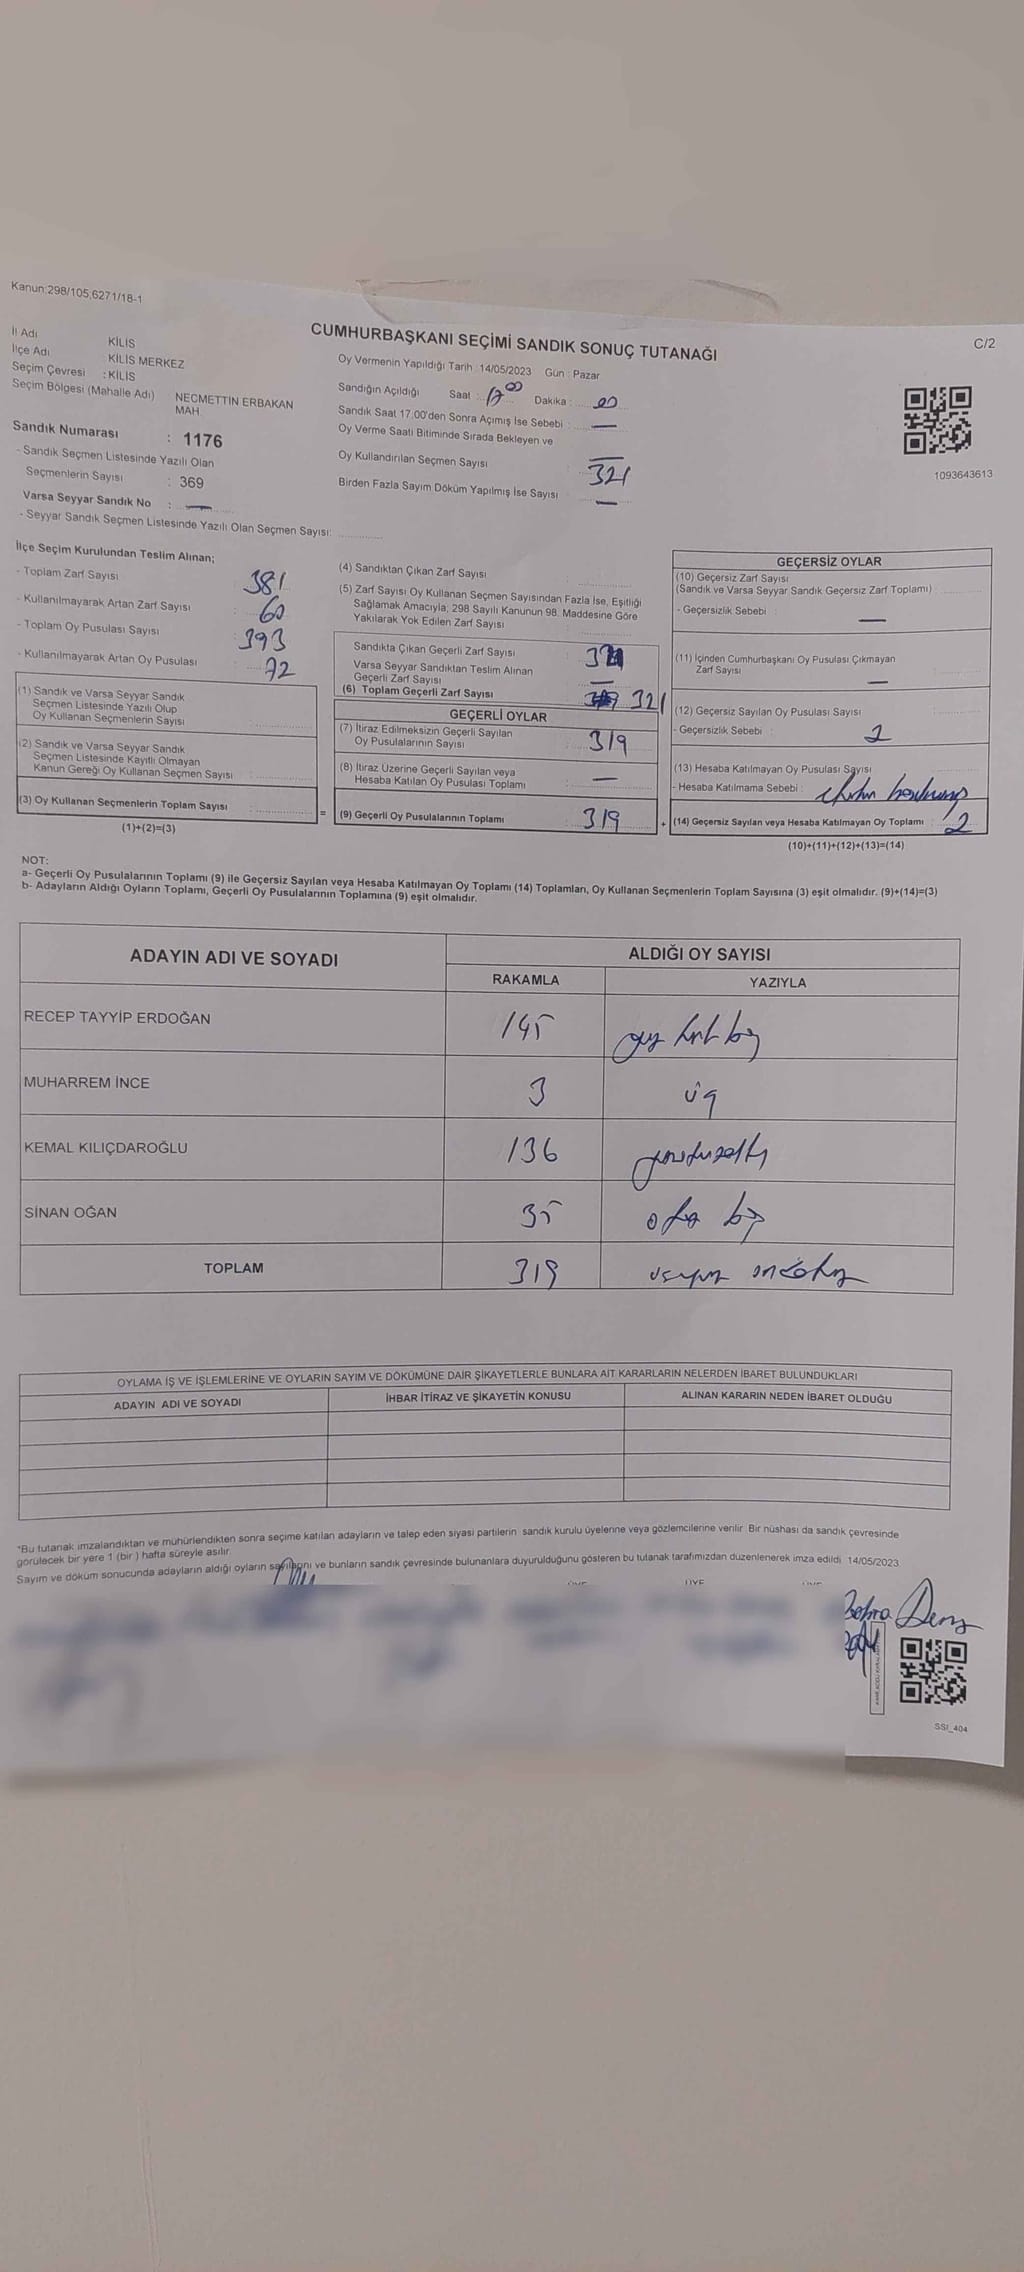 Kanun:298/105,6271/18-1
CUMHURBAŞKANI SEÇİMİ SANDIK SONUÇ TUTANAĞI
C/2
İl Adı KİLİS
İlçe Adı : KİLİS MERKEZ
Seçim Çevresi : KİLİS
Seçim Bölgesi (Mahalle Adı) NECMETTİN ERBAKAN
MAH.
Sandık Numarası : 1176
- Sandık Seçmen Listesinde Yazılı Olan
Seçmenlerin Sayısı : 369
Varsa Seyyar Sandık No : —
- Seyyar Sandık Seçmen Listesinde Yazılı Olan Seçmen Sayısı:
Oy Vermenin Yapıldığı Tarih : 14/05/2023 Gün : Pazar
Sandığın Açıldığı Saat : 17 00 Dakika : 00
Sandık Saat 17.00'den Sonra Açımış İse Sebebi : —
Oy Verme Saati Bitiminde Sırada Bekleyen ve
Oy Kullandırılan Seçmen Sayısı : 321
Birden Fazla Sayım Döküm Yapılmış İse Sayısı : —
1093643613
İlçe Seçim Kurulundan Teslim Alınan;
- Toplam Zarf Sayısı : 381
- Kullanılmayarak Artan Zarf Sayısı : 60
- Toplam Oy Pusulası Sayısı : 393
- Kullanılmayarak Artan Oy Pusulası : 72
(1) Sandık ve Varsa Seyyar Sandık
Seçmen Listesinde Yazılı Olup
Oy Kullanan Seçmenlerin Sayısı :
(2) Sandık ve Varsa Seyyar Sandık
Seçmen Listesinde Kayıtlı Olmayan
Kanun Gereği Oy Kullanan Seçmen Sayısı :
(3) Oy Kullanan Seçmenlerin Toplam Sayısı :
(1)+(2)=(3)
(4) Sandıktan Çıkan Zarf Sayısı :
(5) Zarf Sayısı Oy Kullanan Seçmen Sayısından Fazla İse, Eşitliği
Sağlamak Amacıyla; 298 Sayılı Kanunun 98. Maddesine Göre
Yakılarak Yok Edilen Zarf Sayısı :
Sandıkta Çıkan Geçerli Zarf Sayısı
Varsa Seyyar Sandıktan Teslim Alınan
Geçerli Zarf Sayısı —
(6) Toplam Geçerli Zarf Sayısı 321
GEÇERLİ OYLAR
(7) İtiraz Edilmeksizin Geçerli Sayılan
Oy Pusulalarının Sayısı : 319
(8) İtiraz Üzerine Geçerli Sayılan veya
Hesaba Katılan Oy Pusulası Toplamı : —
= (9) Geçerli Oy Pusulalarının Toplamı : 319
GEÇERSİZ OYLAR
(10) Geçersiz Zarf Sayısı
(Sandık ve Varsa Seyyar Sandık Geçersiz Zarf Toplamı) :
- Geçersizlik Sebebi : —
(11) İçinden Cumhurbaşkanı Oy Pusulası Çıkmayan
Zarf Sayısı : —
(12) Geçersiz Sayılan Oy Pusulası Sayısı :
- Geçersizlik Sebebi : 2
(13) Hesaba Katılmayan Oy Pusulası Sayısı
- Hesaba Katılmama Sebebi :
+ (14) Geçersiz Sayılan veya Hesaba Katılmayan Oy Toplamı : 2
(10)+(11)+(12)+(13)=(14)
NOT:
a- Geçerli Oy Pusulalarının Toplamı (9) ile Geçersiz Sayılan veya Hesaba Katılmayan Oy Toplamı (14) Toplamları, Oy Kullanan Seçmenlerin Toplam Sayısına (3) eşit olmalıdır. (9)+(14)=(3)
b- Adayların Aldığı Oyların Toplamı, Geçerli Oy Pusulalarının Toplamına (9) eşit olmalıdır.
ADAYIN ADI VE SOYADI ALDIĞI OY SAYISI
RAKAMLA YAZIYLA
RECEP TAYYİP ERDOĞAN 145 yüz kırk beş
MUHARREM İNCE 3 üç
KEMAL KILIÇDAROĞLU 136 yüzotuzaltı
SİNAN OĞAN 35 otuz beş
TOPLAM 319 üçyüz ondokuz
OYLAMA İŞ VE İŞLEMLERİNE VE OYLARIN SAYIM VE DÖKÜMÜNE DAİR ŞİKAYETLERLE BUNLARA AİT KARARLARIN NELERDEN İBARET BULUNDUKLARI
ADAYIN ADI VE SOYADI İHBAR İTİRAZ VE ŞİKAYETİN KONUSU ALINAN KARARIN NEDEN İBARET OLDUĞU
*Bu tutanak imzalandıktan ve mühürlendikten sonra seçime katılan adayların ve talep eden siyasi partilerin sandık kurulu üyelerine veya gözlemcilerine verilir. Bir nüshası da sandık çevresinde
görülecek bir yere 1 (bir ) hafta süreyle asılır.
Sayım ve döküm sonucunda adayların aldığı oyların sayılarını ve bunların sandık çevresinde bulunanlara duyurulduğunu gösteren bu tutanak tarafımızdan düzenlenerek imza edildi. 14/05/2023
ÜYE ÜYE ÜYE
SSI_404